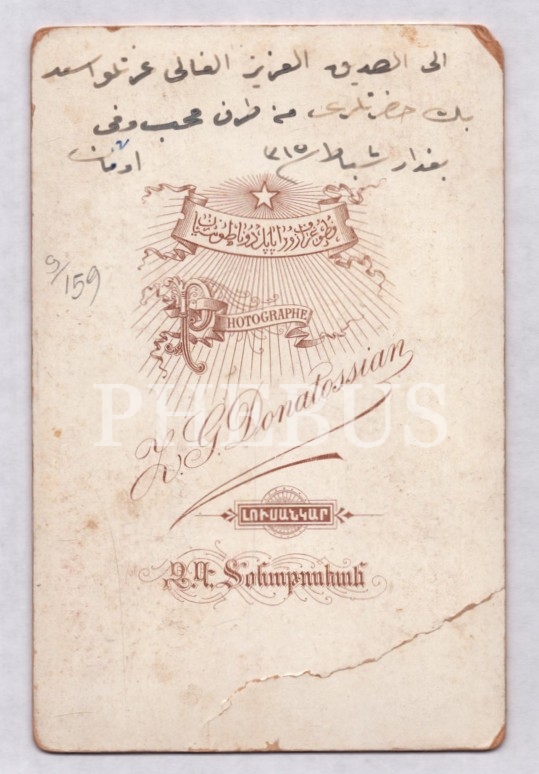 الى الصديق العزيز الغالى عزتلو اسعد
بك حضرتلرى من طرف محب وفى
بغداد شباط ٣١٥
9/159
PHOTOGRAPHE
Z. G. Donatossian
ԼՈՒՍԱՆԿԱՐ
Զ. Գ. Տօնաթոսեան
PHEBUS